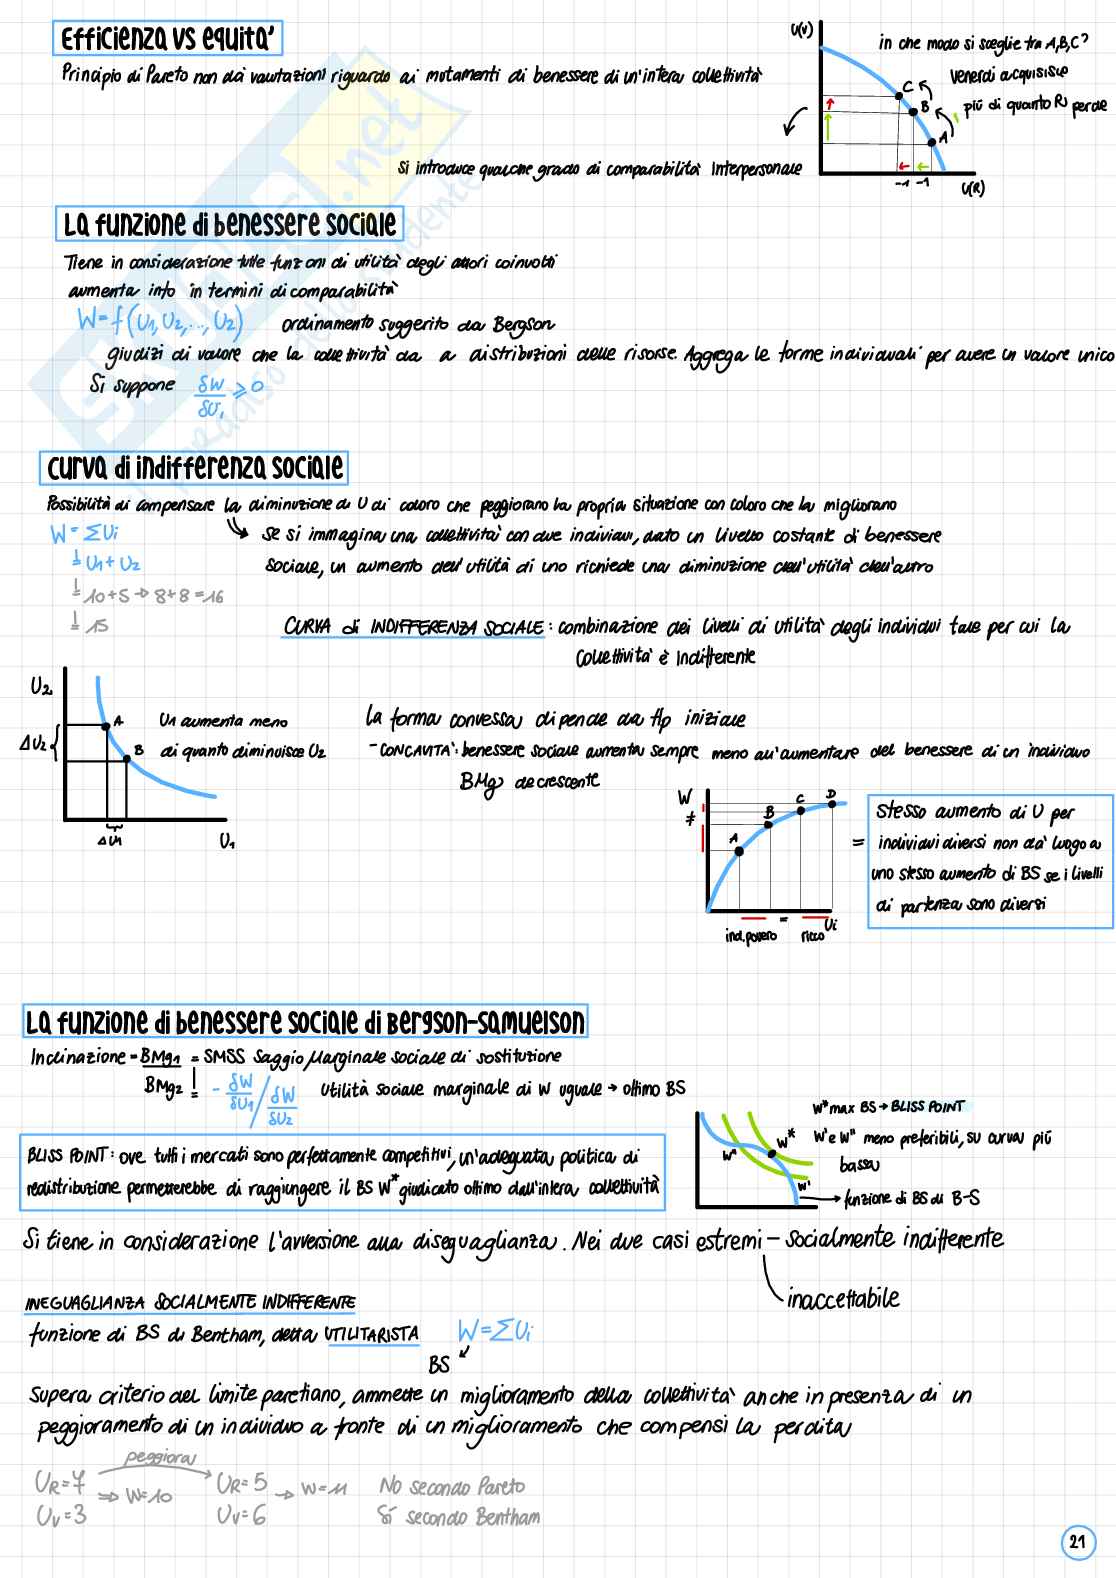 Efficienza vs equità'
Principio di Pareto non dà valutazioni riguardo ai mutamenti di benessere di un'intera collettività
U(V)
in che modo si sceglie tra A,B,C?
Venerdì acquisisce
più di quanto R perde
C
B
A
-1 -1
U(R)
Si introduce qualche grado di comparabilità Interpersonale
La funzione di benessere sociale
Tiene in considerazione tutte funzioni di utilità degli attori coinvolti
aumenta info in termini di comparabilità
W=f(U1,U2,...,U2) ordinamento suggerito da Bergson
giudizi di valore che la collettività da a distribuzioni delle risorse. Aggrega le forme individuali per avere un valore unico
Si suppone δW/δU1 ≥ 0
Curva di indifferenza sociale
Possibilità di compensare la diminuzione di U di coloro che peggiorano la propria situazione con coloro che la migliorano
W = ΣUi
= U1 + U2
= 10+5 → 8+8=16
= 15
se si immagina una collettività con due individui, dato un livello costante di benessere
sociale, un aumento dell'utilità di uno richiede una diminuzione dell'utilità dell'altro
CURVA di INDIFFERENZA SOCIALE: combinazione dei livelli di utilità degli individui tale per cui la
collettività è Indifferente
U2
ΔU2
A
B
ΔU1
U1
U1 aumenta meno
di quanto diminuisce U2
La forma convessa dipende da Hp iniziale
- CONCAVITA': benessere sociale aumenta sempre meno all'aumentare del benessere di un individuo
BMg decrescente
W
≠
A
B
C
D
=
Ui
ind.povero
ricco
=
Stesso aumento di U per
individui diversi non da' luogo a
uno stesso aumento di BS se i livelli
di partenza sono diversi
La funzione di benessere sociale di Bergson-Samuelson
Inclinazione = BMg1/BMg2 = SMSS Saggio Marginale sociale di sostituzione
= - δW/δU1 / δW/δU2 Utilità sociale marginale di W uguale → ottimo BS
BLISS POINT: ove tutti i mercati sono perfettamente competitivi, un'adeguata politica di
redistribuzione permetterebbe di raggiungere il BS W* giudicato ottimo dall'intera collettività
W*
W"
W'
W* max BS → BLISS POINT
W' e W" meno preferibili, su curva più
bassa
funzione di BS di B-S
Si tiene in considerazione l'avversione alla diseguaglianza. Nei due casi estremi - socialmente indifferente
inaccettabile
INEGUAGLIANZA SOCIALMENTE INDIFFERENTE
funzione di BS di Bentham, detta UTILITARISTA W=ΣUi
BS
Supera criterio del limite paretiano, ammette un miglioramento della collettività anche in presenza di un
peggioramento di un individuo a fronte di un miglioramento che compensi la perdita
peggiora
UR=7 ⇒ W=10 UR=5 → W=11 No secondo Pareto
UV=3 UV=6 Sí secondo Bentham
21